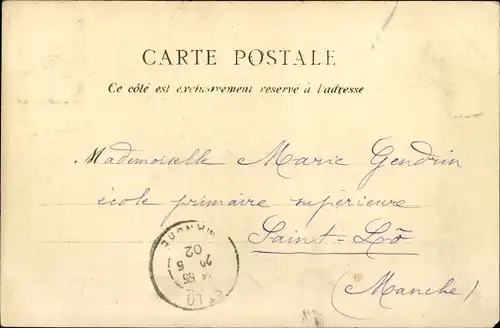 CARTE POSTALE
Ce côté est exclusivement réservé à l'adresse
Mademoiselle Marie Gendrin
école primaire supérieure
Saint-Lô
(Manche)
MANCHE
02
5
LO